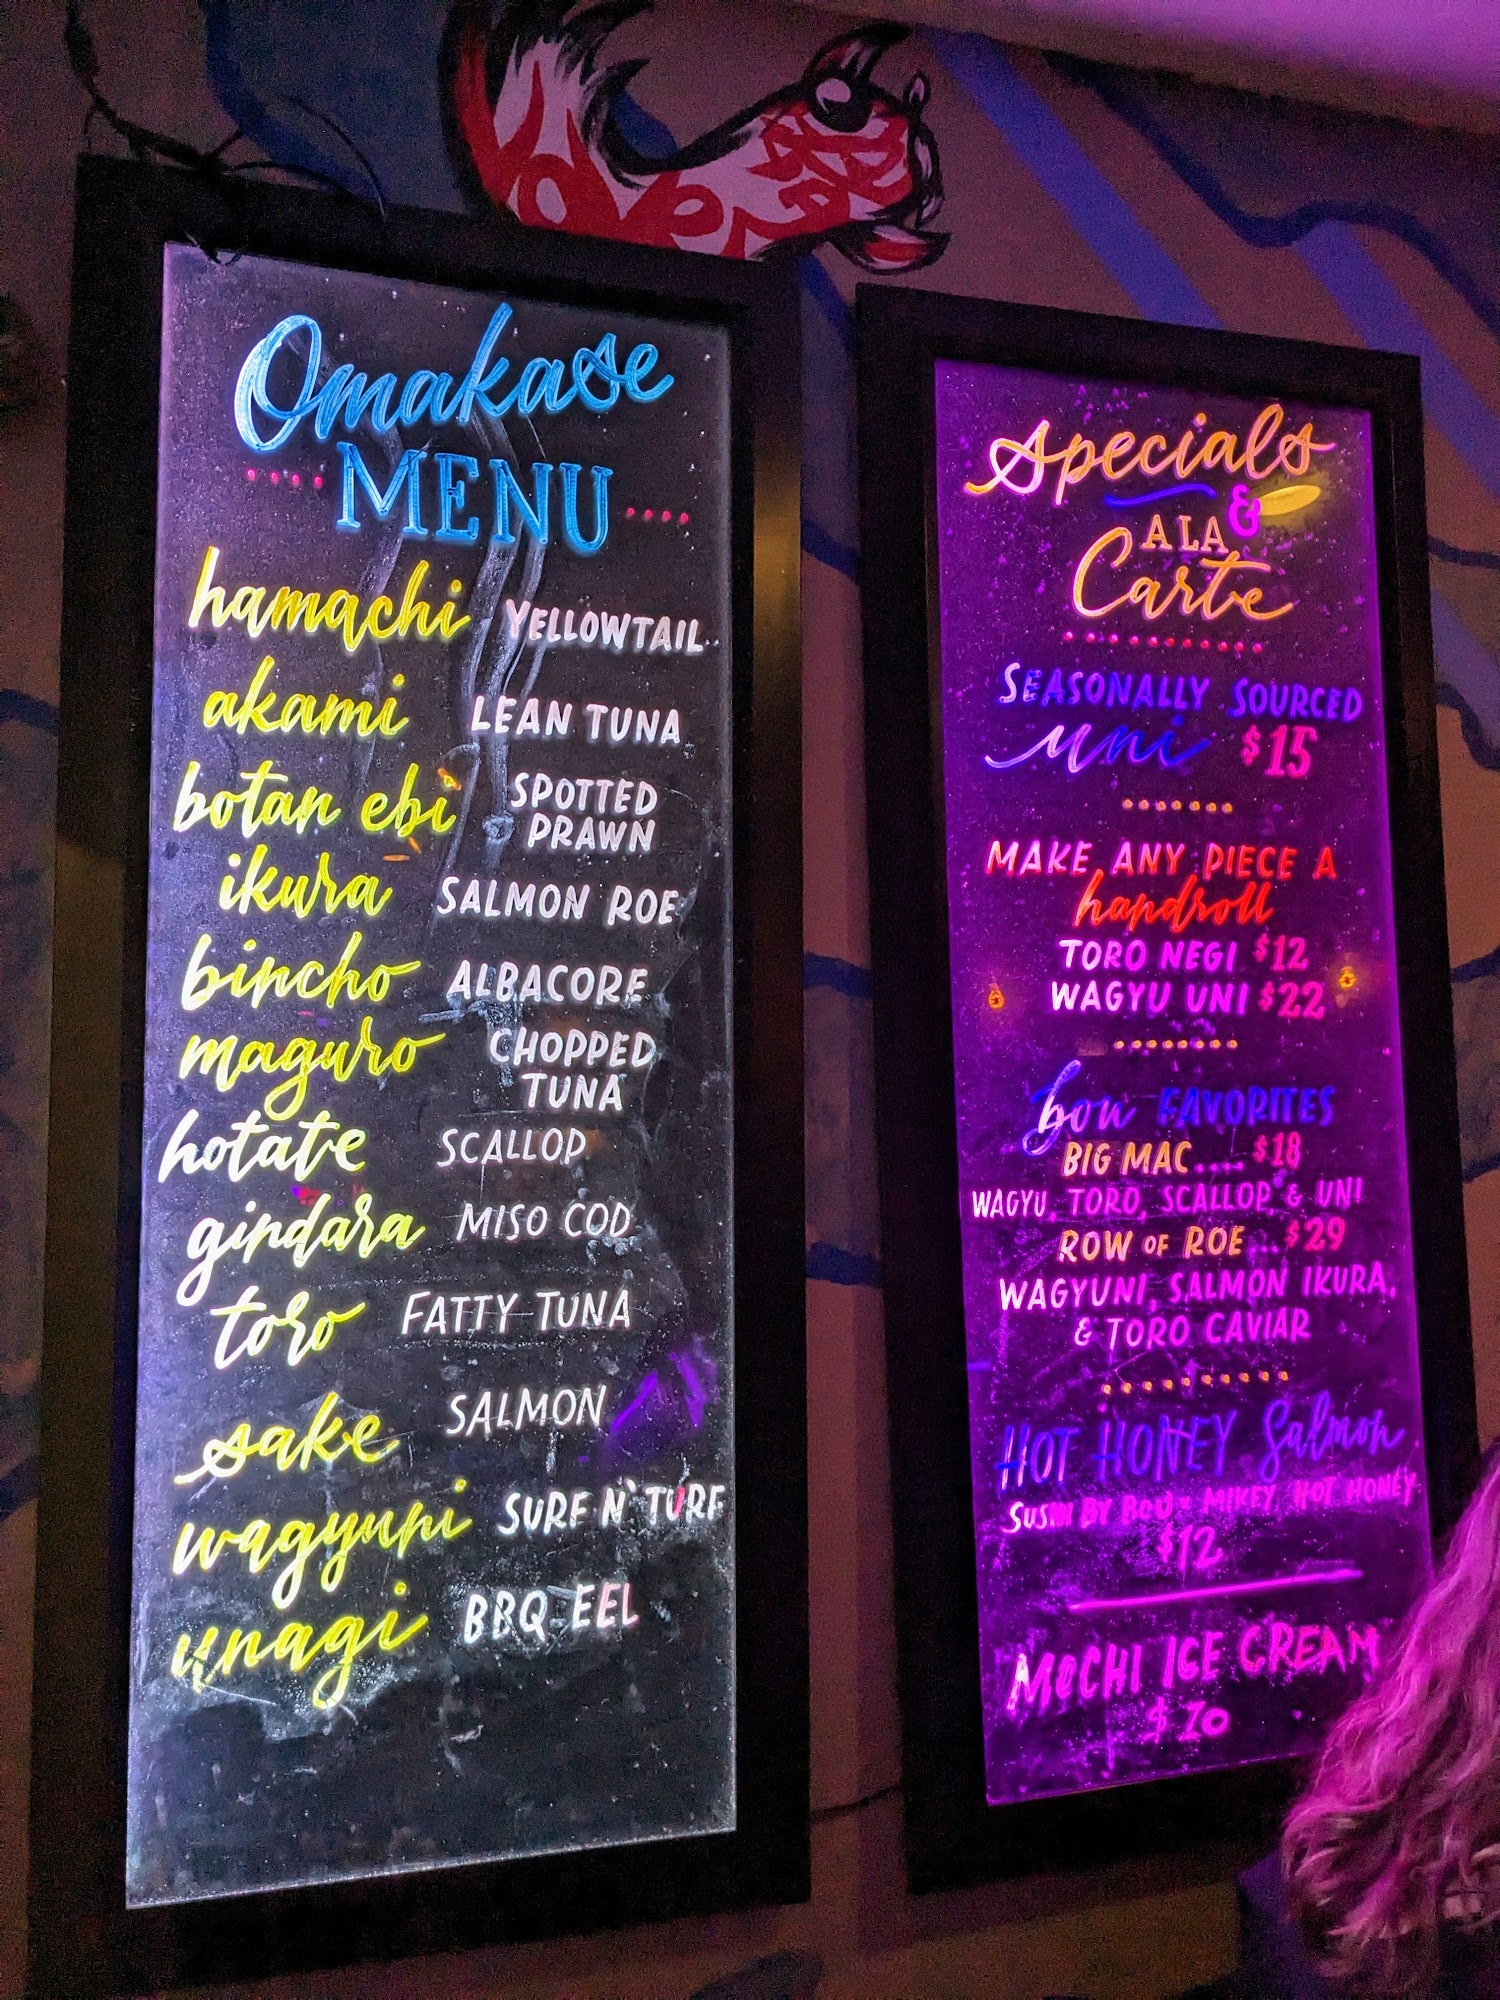 Omakase
MENU
hamachi YELLOWTAIL
akami LEAN TUNA
botan ebi SPOTTED
PRAWN
ikura SALMON ROE
bincho ALBACORE
maguro CHOPPED
TUNA
hotate SCALLOP
gindara MISO COD
toro FATTY TUNA
sake SALMON
wagyuni SURF N' TURF
unagi BBQ EEL
Specials
&
A LA
Carte
SEASONALLY SOURCED
uni $15
MAKE ANY PIECE A
handroll
TORO NEGI $12
WAGYU UNI $22
bou FAVORITES
BIG MAC.... $18
WAGYU, TORO, SCALLOP, & UNI
ROW OF ROE... $29
WAGYUNI, SALMON IKURA,
& TORO CAVIAR
HOT HONEY Salmon
SUSHI BY BOU MIKEY HOT HONEY
$12
MOCHI ICE CREAM
$10